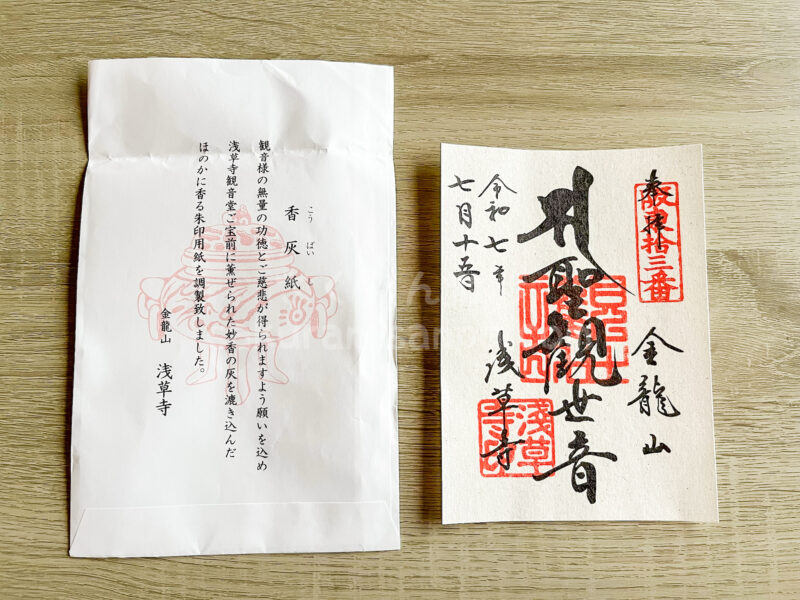 香灰紙
こう ばい し
観音様の無量の功徳とご慈悲が得られますよう願いを込め
浅草寺観音堂ご宝前に薫ぜられた妙香の灰を漉き込んだ
ほのかに香る朱印用紙を調製致しました。
金龍山 浅草寺
奉拝
坂東拾三番
金龍山
聖観世音
浅草寺
浅草
令和七年
七月十五日